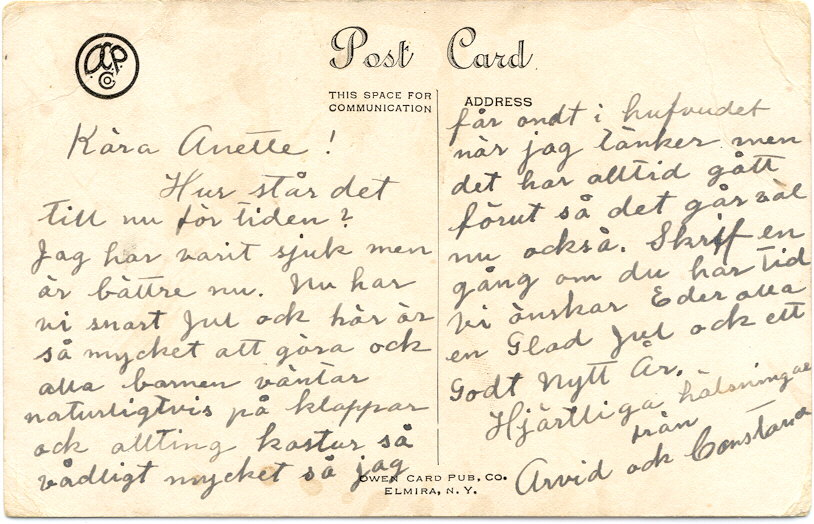 OCP Co.
Post Card
THIS SPACE FOR
COMMUNICATION
ADDRESS
Kära Anette!
Hur står det
till nu för tiden?
Jag har varit sjuk men
är bättre nu. Nu har
vi snart Jul ock här är
så mycket att göra ock
alla barnen väntar
naturligtvis på klappar
ock allting kostar så
vådligt mycket så jag
får ondt i hufvudet
när jag tänker men
det har alltid gått
förut så det går väl
nu också. Skrif en
gång om du har tid
Vi önskar Eder alla
en Glad Jul ock ett
Godt Nytt År.
Hjärtliga hälsningar
från
Arvid ock Constana
OWEN CARD PUB. CO.
ELMIRA, N. Y.